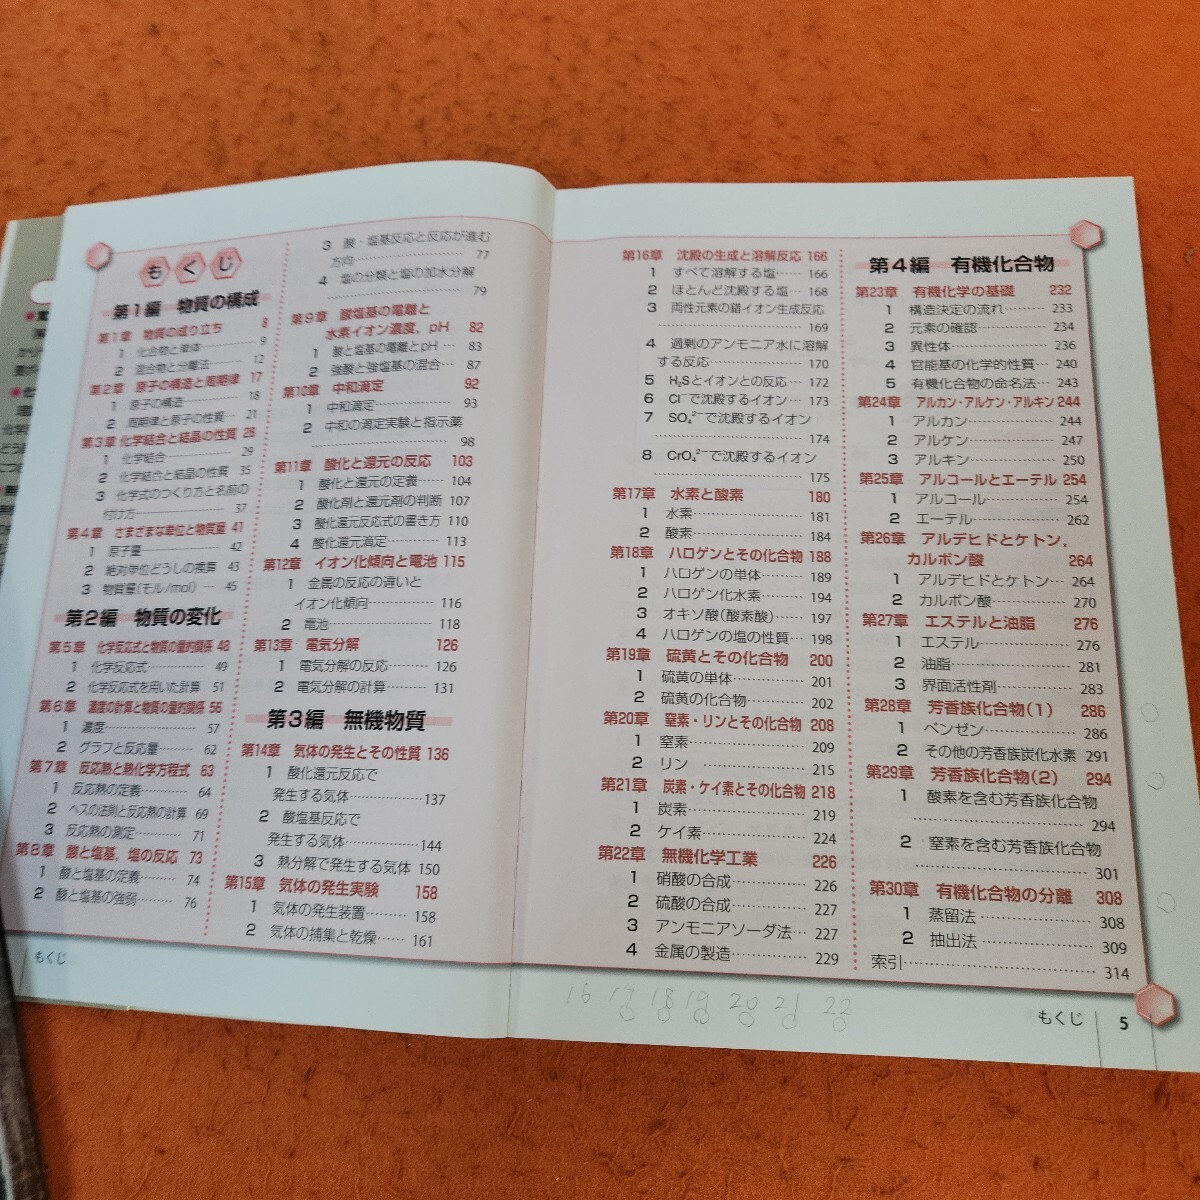 もくじ
第1編 物質の構成
第1章 物質の成り立ち 8
1 化合物と単体 9
2 混合物と分離法 12
第2章 原子の構造と周期律 17
1 原子の構造 18
2 周期律と原子の性質 21
第3章 化学結合と結晶の性質 28
1 化学結合 29
2 化学結合と結晶の性質 35
3 化学式のつくり方と名前の
付け方 37
第4章 さまざまな単位と物質量 41
1 原子量 42
2 絶対単位どうしの換算 43
3 物質量(モル/mol) 45
第2編 物質の変化
第5章 化学反応式と物質の量的関係 48
1 化学反応式 49
2 化学反応式を用いた計算 51
第6章 濃度の計算と物質の量的関係 56
1 濃度 57
2 グラフと反応量 62
第7章 反応熱と熱化学方程式 63
1 反応熱の定義 64
2 ヘスの法則と反応熱の計算 69
3 反応熱の測定 71
第8章 酸と塩基,塩の反応 73
1 酸と塩基の定義 74
2 酸と塩基の強弱 76
3 酸・塩基反応と反応が進む
方向 77
4 塩の分類と塩の加水分解
79
第9章 酸塩基の電離と
水素イオン濃度,pH 82
1 酸と塩基の電離とpH 83
2 強酸と強塩基の混合 87
第10章 中和滴定 92
1 中和滴定 93
2 中和の滴定実験と指示薬
98
第11章 酸化と還元の反応 103
1 酸化と還元の定義 104
2 酸化剤と還元剤の判断 107
3 酸化還元反応式の書き方 110
4 酸化還元滴定 113
第12章 イオン化傾向と電池 115
1 金属の反応の違いと
イオン化傾向 116
2 電池 118
第13章 電気分解 126
1 電気分解の反応 126
2 電気分解の計算 131
第3編 無機物質
第14章 気体の発生とその性質 136
1 酸化還元反応で
発生する気体 137
2 酸塩基反応で
発生する気体 144
3 熱分解で発生する気体 150
第15章 気体の発生実験 158
1 気体の発生装置 158
2 気体の捕集と乾燥 161
もくじ
第16章 沈殿の生成と溶解反応 166
1 すべて溶解する塩 166
2 ほとんど沈殿する塩 168
3 両性元素の錯イオン生成反応
169
4 過剰のアンモニア水に溶解
する反応 170
5 H₂Sとイオンとの反応 172
6 Cl⁻で沈殿するイオン 173
7 SO₄²⁻で沈殿するイオン
174
8 CrO₄²⁻で沈殿するイオン
175
第17章 水素と酸素 180
1 水素 181
2 酸素 184
第18章 ハロゲンとその化合物 188
1 ハロゲンの単体 189
2 ハロゲン化水素 194
3 オキソ酸(酸素酸) 197
4 ハロゲンの塩の性質 198
第19章 硫黄とその化合物 200
1 硫黄の単体 201
2 硫黄の化合物 202
第20章 窒素・リンとその化合物 208
1 窒素 209
2 リン 215
第21章 炭素・ケイ素とその化合物 218
1 炭素 219
2 ケイ素 224
第22章 無機化学工業 226
1 硝酸の合成 226
2 硫酸の合成 227
3 アンモニアソーダ法 227
4 金属の製造 229
16 17 18 19 20 21 22
第4編 有機化合物
第23章 有機化学の基礎 232
1 構造決定の流れ 233
2 元素の確認 234
3 異性体 236
4 官能基の化学的性質 240
5 有機化合物の命名法 243
第24章 アルカン・アルケン・アルキン 244
1 アルカン 244
2 アルケン 247
3 アルキン 250
第25章 アルコールとエーテル 254
1 アルコール 254
2 エーテル 262
第26章 アルデヒドとケトン,
カルボン酸 264
1 アルデヒドとケトン 264
2 カルボン酸 270
第27章 エステルと油脂 276
1 エステル 276
2 油脂 281
3 界面活性剤 283
第28章 芳香族化合物(1) 286
1 ベンゼン 286
2 その他の芳香族炭化水素 291
第29章 芳香族化合物(2) 294
1 酸素を含む芳香族化合物
294
2 窒素を含む芳香族化合物
301
第30章 有機化合物の分離 308
1 蒸留法 308
2 抽出法 309
索引 314
もくじ 5